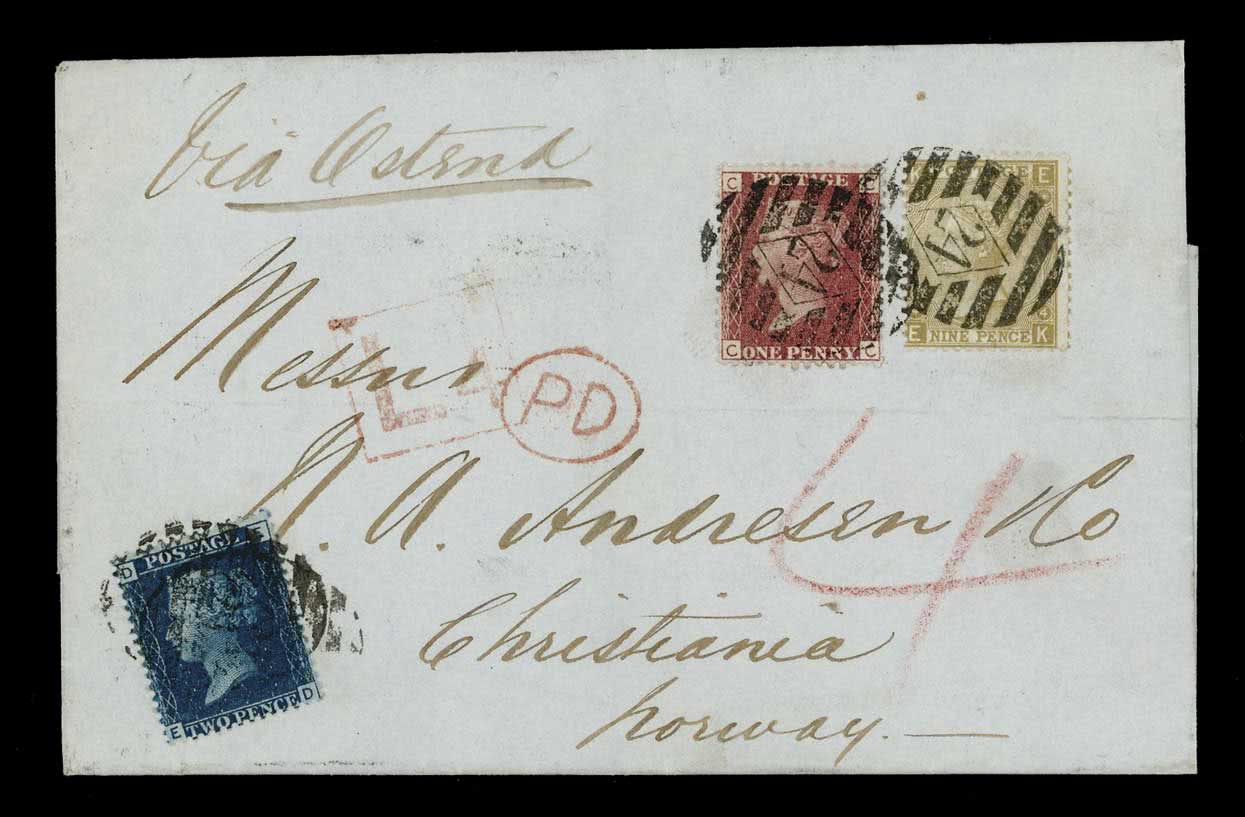 Via Ostend
C POSTAGE C
24
C ONE PENNY C
K POSTAGE E
24
4
E NINE PENCE K
Messrs
L1
PD
N. A. Andresen & Co
4
Christiania
Norway.
D POSTAGE E
E TWO PENCE D